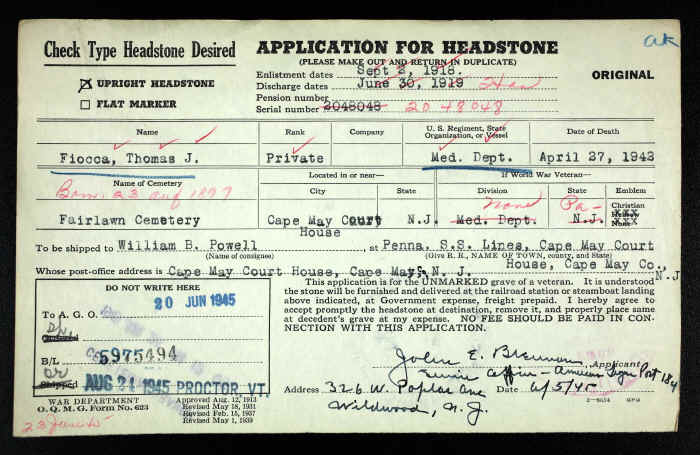 ok
Check Type Headstone Desired
APPLICATION FOR HEADSTONE
(PLEASE MAKE OUT AND RETURN IN DUPLICATE)
Enlistment dates Sept 2, 1918.
ORIGINAL
X UPRIGHT HEADSTONE
Discharge dates June 30, 1919
FLAT MARKER
Pension number
Serial number 2048048 2048048
Name Rank Company U. S. Regiment, State Organization, or Vessel Date of Death
Fiocca, Thomas J. Private Med. Dept. April 27, 1942
Name of Cemetery Located in or near— If World War Veteran—
City State Division State Emblem
Born 23 Aug 1897 None Pa- Christian
Hebrew
None
Fairlawn Cemetery Cape May Court House N.J. Med. Dept. N.J. XXX
XXX
To be shipped to William B. Powell at Penna. S.S. Lines, Cape May Court
(Name of consignee) (Give R. R., NAME OF TOWN, county, and State)
House, Cape May Co., N.J
Whose post-office address is Cape May Court House, Cape May, N. J.
DO NOT WRITE HERE
20 JUN 1945
To A. G. O.
B/L 5975494
Shipped AUG 24 1945 PROCTOR VT.
This application is for the UNMARKED grave of a veteran. It is understood
the stone will be furnished and delivered at the railroad station or steamboat landing
above indicated, at Government expense, freight prepaid. I hereby agree to
accept promptly the headstone at destination, remove it, and properly place same
at decedent's grave at my expense. NO FEE SHOULD BE PAID IN CON-
NECTION WITH THIS APPLICATION.
John E. Brennan Applicant
Service Officer - American Legion Post 184
Address 326 W. Poplar Ave Date 6/5/45
Wildwood, N. J.
WAR DEPARTMENT
O. Q. M. G. Form No. 623
Approved Aug. 12, 1913
Revised May 18, 1931
Revised Feb. 15, 1937
Revised May 1, 1939
GPO